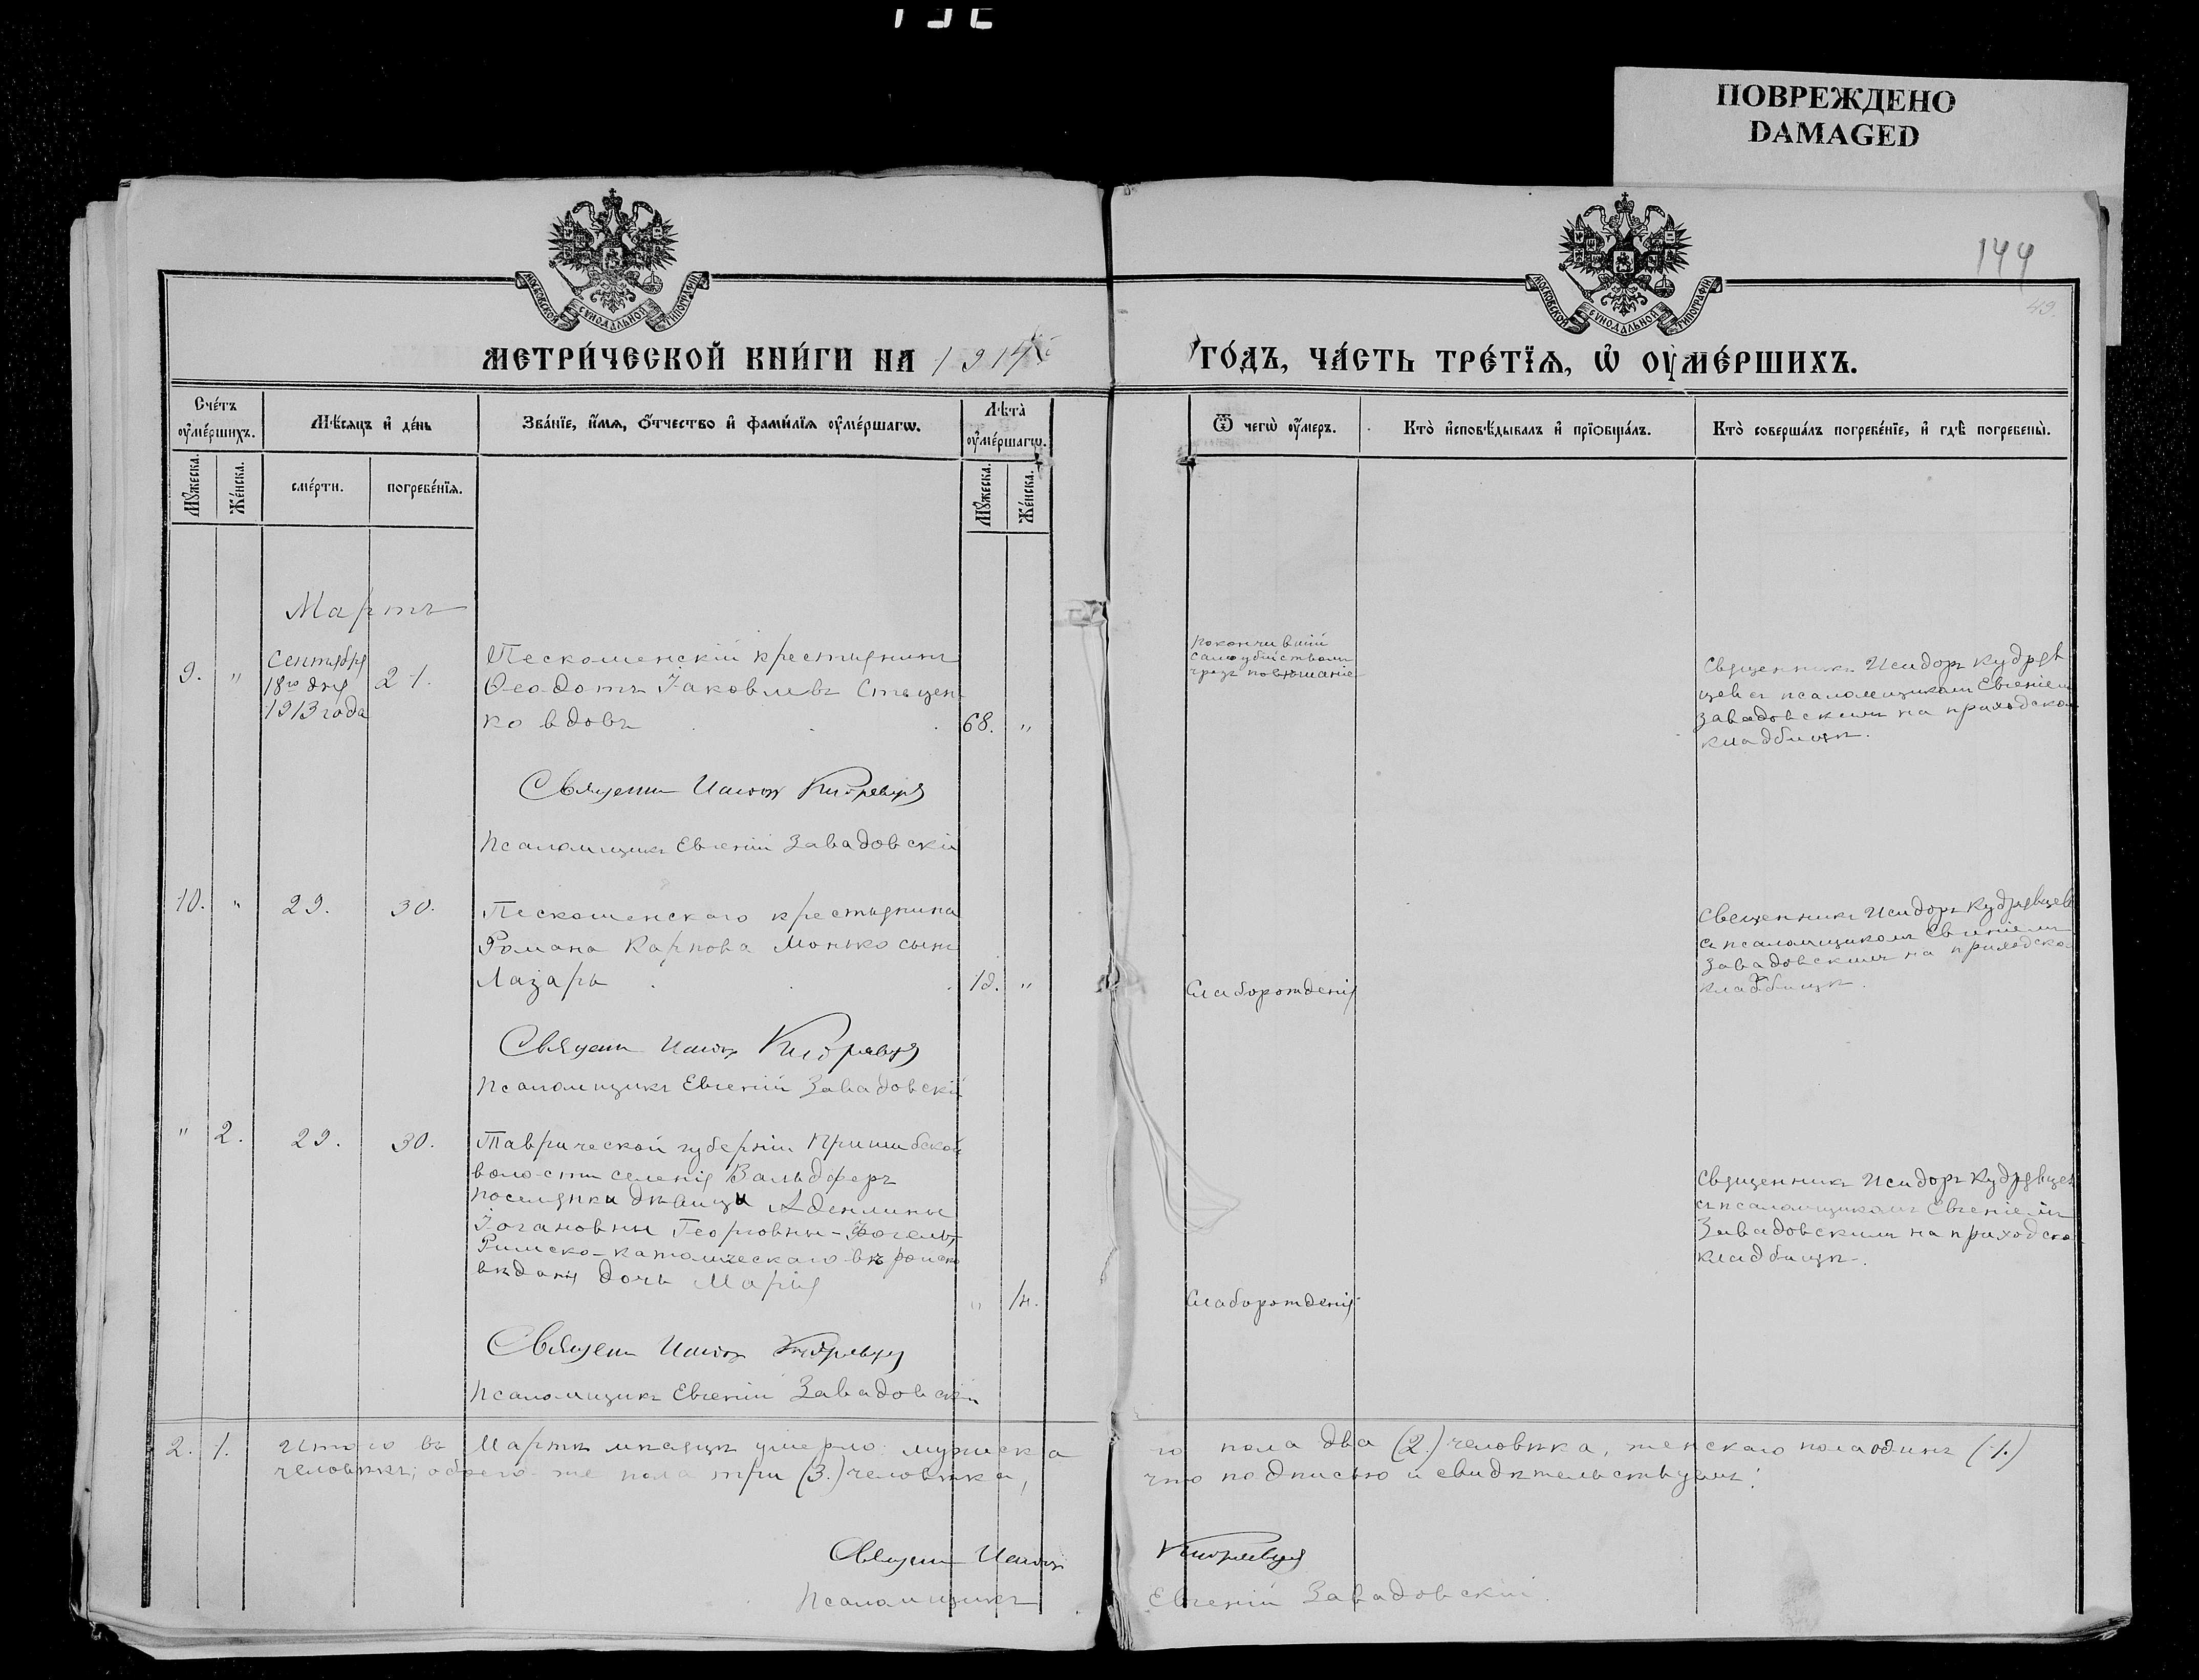 ПОВРЕЖДЕНО
DAMAGED
144
49.
МОСКОВСКОЙ СѴНОДАЛЬНОЙ ТИПОГРАФІИ
МОСКОВСКОЙ СѴНОДАЛЬНОЙ ТИПОГРАФІИ
МЕТРИ́ЧЕСКОЙ КНИ́ГИ НА 1914 ГО́ДЪ, ЧА́СТЬ ТРЕ́ТЇѦ, Ѡ҆ ОУ҆МЕ́РШИХЪ.
Сче́тъ оу҆ме́ршихъ.
Мѣ́сѧцъ и҆ де́нь
Зва́нїе, и҆́мѧ, ѻ҆́тчество и҆ фами́лїѧ оу҆ме́ршагѡ.
Лѣ́та оу҆ме́ршагѡ.
Ѿ чегѡ̀ оу҆́меръ.
Кто̀ и҆сповѣ́дывалъ и҆ прїѡбща́лъ.
Кто̀ соверша́лъ погребе́нїе, и҆ гдѣ̀ погребены̀.
Мꙋ́жеска.
Же́нска.
сме́рти.
погребе́нїѧ.
Мꙋ́жеска.
Же́нска.
Мартъ
9. " Сентября 18го дня 1913 года 21.
Пескошенскій крестьянинъ
Ѳеодотъ Іаковлевъ Стецен
ко вдовъ 68. "
покончившій
самоубійствомъ
чрезъ повѣшаніе
Священникъ Исидоръ Кудряв
цевъ съ псаломщикомъ Евгеніемъ
Завадовскимъ на приходско
кладбищѣ.
Священн Исидор Кудрявцев
Псаломщикъ Евгеній Завадовскій
10. " 29. 30.
Пескошенскаго крестьянина
Романа Карпова Монько сынъ
Лазарь 1д. "
Слаборожденія
Священникъ Исидоръ Кудрявцевъ
съ псаломщикомъ Евгеніемъ
Завадовскимъ на приходско
кладбищѣ.
Священн Исидор Кудрявцев
Псаломщикъ Евгеній Завадовскій
" 2. 29. 30.
Таврической губерніи Пришибской
волости селенія Вальдферъ
поселянки дѣвицы Аделины
Іогановны Георговны-Фогель
Римско-католическаго вѣроиспо
вѣданія дочь Марія " 1н.
Слаборожденія
Священникъ Исидоръ Кудрявцев
съ псаломщикомъ Евгеніемъ
Завадовскимъ на приходско
кладбищѣ.
Священн Исидор Кудрявцев
Псаломщикъ Евгеній Завадовскій
2. 1. Итого въ Мартѣ мѣсяцѣ умерло: мужска го пола два (2.) человѣка, женскаго пола одинъ (1.)
человѣкъ; обоего же пола три (3.) человѣка, что подписью и свидѣтельствуемъ:
Священн Исидор Кудрявцев
Псаломщикъ Евгеній Завадовскій.